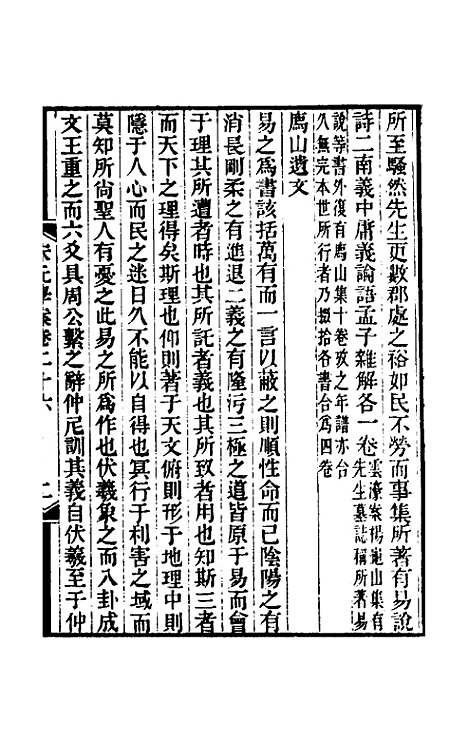 所至騷然先生更數郡處之裕如民不勞而事集所著有易說
詩二南義中庸義論語孟子雜解各一卷
雲濠案楊龜山集有
先生墓誌稱所著易
說等書外復有廌山集十卷攷之年譜亦合
久無完本世所行者乃掇拾各書合為四卷
廌山遺文
易之為書該括萬有而一言以蔽之則順性命而已陰陽之有
消長剛柔之有進退二義之有隆污三極之道皆原于易而會
于理其所遭者時也其所託者義也其所致者用也知斯三者
而天下之理得矣斯理也仰則著于天文俯則形于地理中則
隱于人心而民之迷日久不能以自得也冥行于利害之域而
莫知所尚聖人有憂之此易之所為作也伏羲象之而八卦成
文王重之而六爻具周公繫之辭仲尼訓其義自伏羲至于仲
宋元學案卷二十六
二